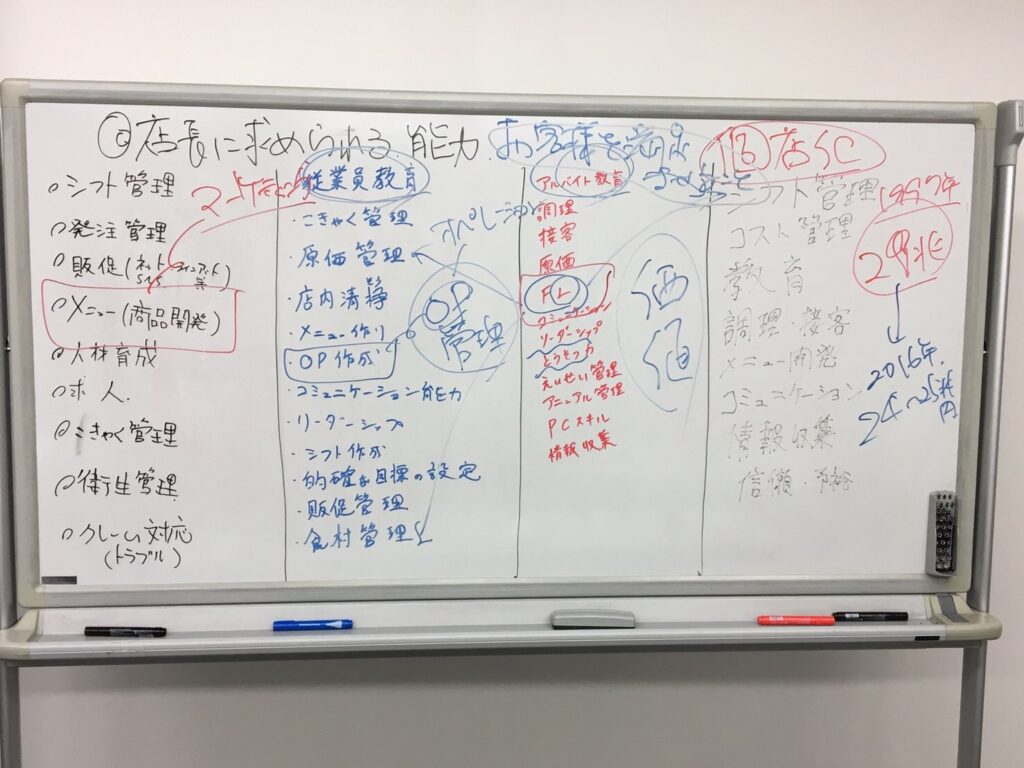 ◎店長に求められる能力
お客様を
店
シフト管理
発注管理
販促(ネット
SNS
メニュー(商品開発)
人材育成
求人.
こきゃく管理
衛生管理
クレーム対応
(トラブル)
従業員教育
・こきゃく管理
・原価管理
・店内清掃
・メニュー作り
・OP作成
・コミュニケーション能力
・リーダーシップ
・シフト作成
・的確な目標の設定
・販促管理
・食材管理
OP
管理
アルバイト教育
調理
接客
原価
FL
コミュニケーション
リーダーシップ
とうそつ力
えいせい管理
マニュアル管理
PCスキル
情報収集
価
値
シフト管理
コスト管理
教育
調理・接客
メニュー開発
コミュニケーション
情報収集
信頼・
1997年
29兆
2016年.
24~25兆
円